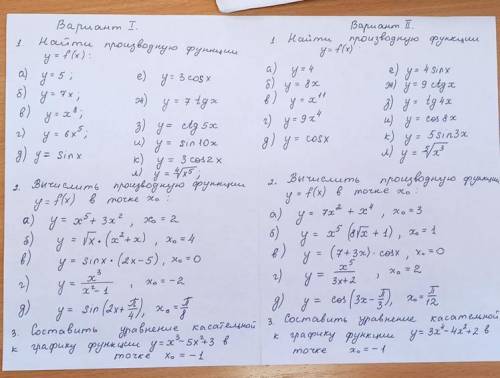 Вариант I.
1. Найти производную функции
y=f(x):
а) y = 5;
б) y = 7x;
в) y = x⁸;
г) y = 6x⁵;
д) y = sinx
е) y = 3cosx
ж) y = 7tgx
з) y = ctg5x
и) y = sin10x
к) y = 3cos2x
л) y = ⁴√x⁵;
2. Вычислить производную функции
y=f(x) в точке x₀:
а) y = x⁵ + 3x², x₀ = 2
б) y = √x · (x²+x), x₀ = 4
в) y = sinx · (2x-5), x₀ = 0
г) y = x³/(x²-1), x₀ = -2
д) y = sin(2x+π/4), x₀ = π/8
3. Составить уравнение касательной
к графику функции y=x³-5x²+3 в
точке x₀ = -1
Вариант II.
1. Найти производную функции
y=f(x)
а) y = 4
б) y = 8x
в) y = x¹¹
г) y = 9x⁴
д) y = cosx
е) y = 4sinx
ж) y = 9ctgx
з) y = tg4x
и) y = cos8x
к) y = 5sin3x
л) y = ⁵√x³
2. Вычислить производную функции
y=f(x) в точке x₀:
а) y = 7x² + x⁴, x₀ = 3
б) y = x⁵(8√x + 1), x₀ = 1
в) y = (7+3x) · cosx, x₀ = 0
г) y = x⁵/(3x+2), x₀ = 2
д) y = cos(3x-π/3), x₀ = π/12
3. Составить уравнение касательной
к графику функции y=3x⁴-4x³+2 в
точке x₀ = -1